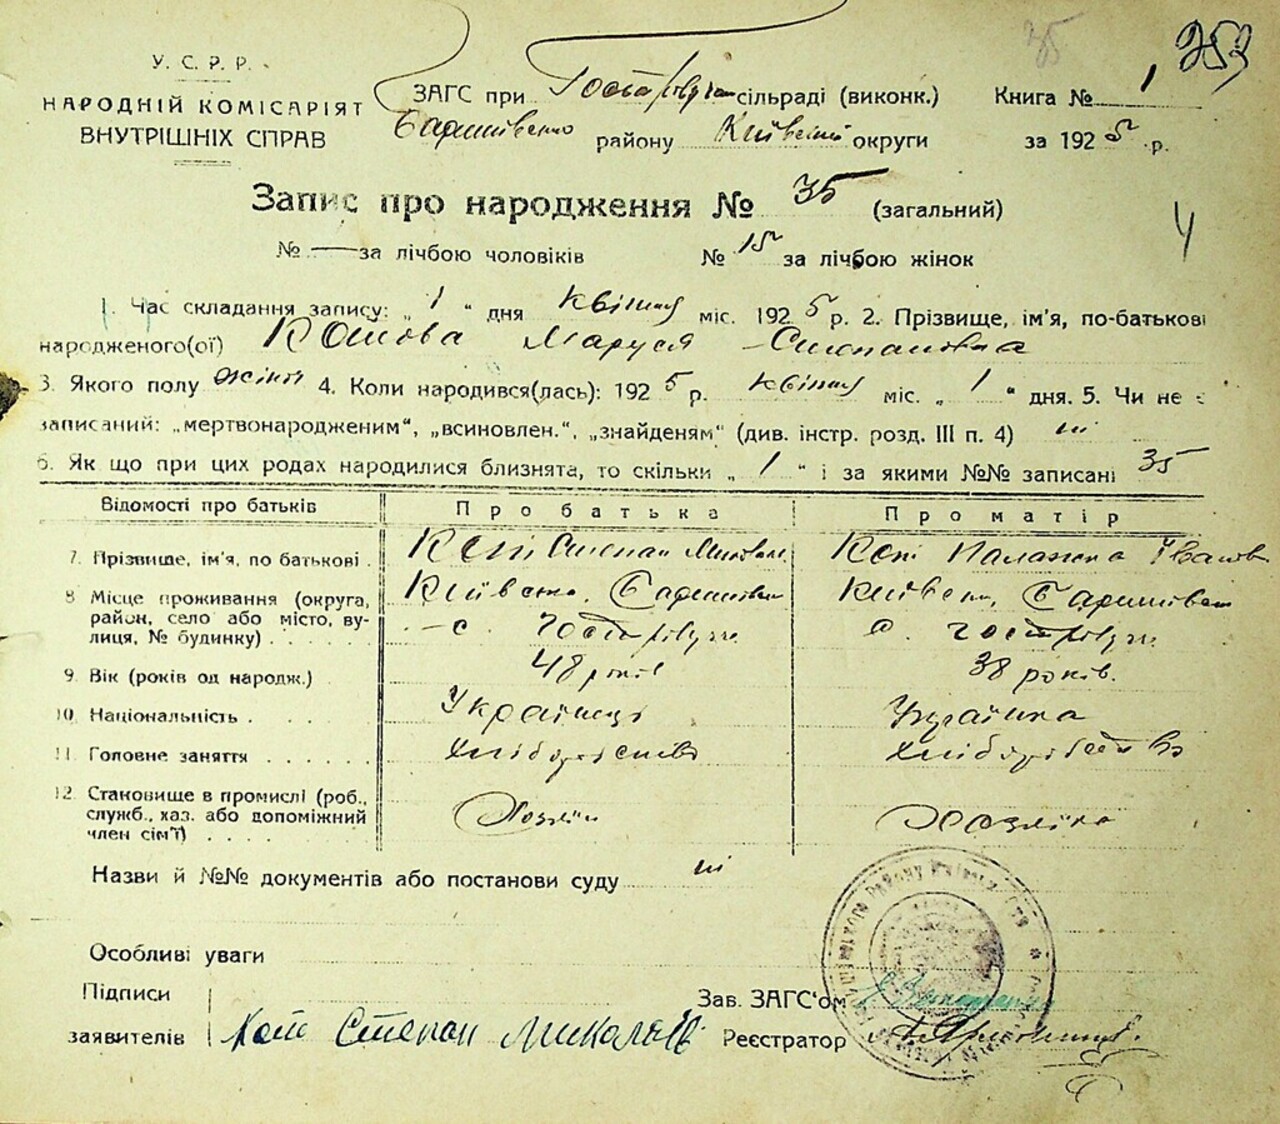 35 353
У. С. Р. Р.
НАРОДНІЙ КОМІСАРІЯТ
ВНУТРІШНІХ СПРАВ
ЗАГС при сільраді (виконк.) Книга № 1
району округи за 1925 р.
Запис про народження № 35 (загальний)
4
№ — за лічбою чоловіків № 15 за лічбою жінок
1. Час складання запису: „ 1 “ дня квітня міс. 1925 р. 2. Прізвище, ім'я, по-батькові
народженого(ої) Маруся Степановна
3. Якого полу жіноч 4. Коли народився(лась): 1925 р. квітня міс. „ 1 “ дня. 5. Чи не є
записаний: „мертвонародженим“, „всиновлен.“, „знайденям“ (див. інстр. розд. III п. 4) ні
6. Як що при цих родах народилися близнята, то скільки „ 1 “ і за якими №№ записані 35
Відомості про батьків Про батька Про матір
7. Прізвище, ім'я, по батькові . Степан Палажка Іванов
8 Місце проживання (округа,
район, село або місто, вулиця, № будинку) . . . . .
9. Вік (років од народж.) 48 років 38 років.
10. Національність . . . . Українець Українка
11. Головне заняття . . . . . . хліборобство
12. Становище в промислі (роб.,
служб., хаз. або допоміжний
член сім'ї) . . . . Хозяїн Хозяїка
Назви й №№ документів або постанови суду ні
Особливі уваги
Підписи Зав. ЗАГС'ом
заявителів Степан Реєстратор